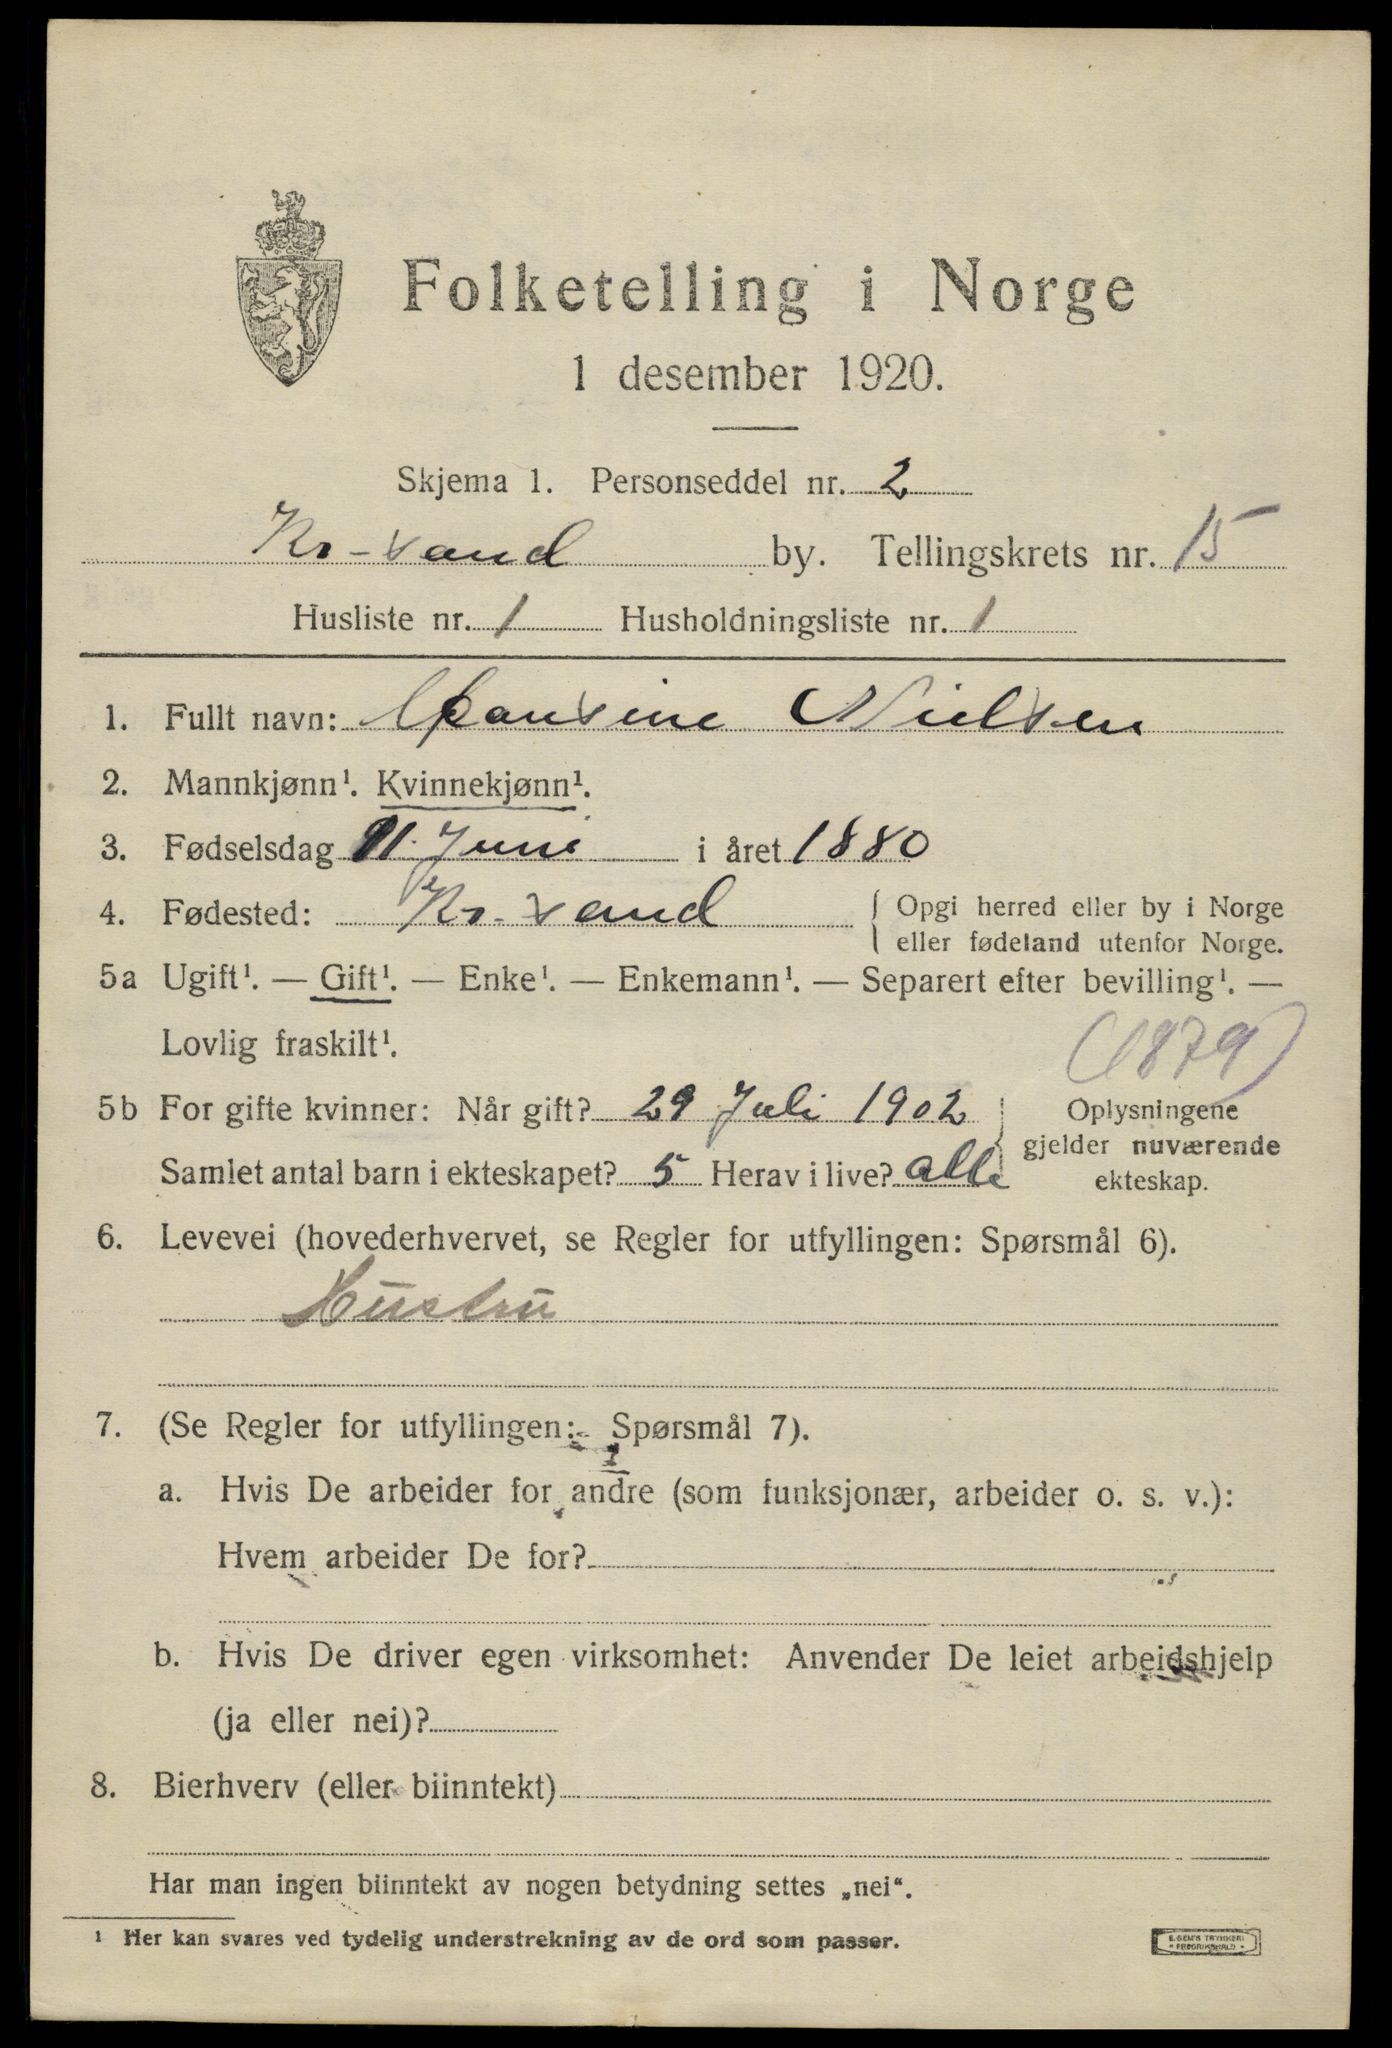 Folketelling i Norge
1 desember 1920.
Skjema 1. Personseddel nr. 2
Kr-sand by. Tellingskrets nr. 15
Husliste nr. 1 Husholdningsliste nr. 1
1. Fullt navn: Nielsen
2. Mannkjønn¹. Kvinnekjønn¹.
3. Fødselsdag 11. Juni i året 1880
4. Fødested: Kr.sand { Opgi herred eller by i Norge
eller fødeland utenfor Norge.
5a Ugift¹. — Gift¹. — Enke¹. — Enkemann¹. — Separert efter bevilling¹. —
Lovlig fraskilt¹.
(1879)
5b For gifte kvinner: Når gift? 29 Juli 1902
Samlet antal barn i ekteskapet? 5 Herav i live? alle
Oplysningene
gjelder nuværende
ekteskap.
6. Levevei (hovederhvervet, se Regler for utfyllingen: Spørsmål 6).
Hustru
7. (Se Regler for utfyllingen: Spørsmål 7).
a. Hvis De arbeider for andre (som funksjonær, arbeider o. s. v.):
Hvem arbeider De for?
b. Hvis De driver egen virksomhet: Anvender De leiet arbeidshjelp
(ja eller nei)?
8. Bierhverv (eller biinntekt)
Har man ingen biinntekt av nogen betydning settes „nei“.
¹ Her kan svares ved tydelig understrekning av de ord som passer.
E. SEM'S TRYKKERI
FREDRIKSHALD